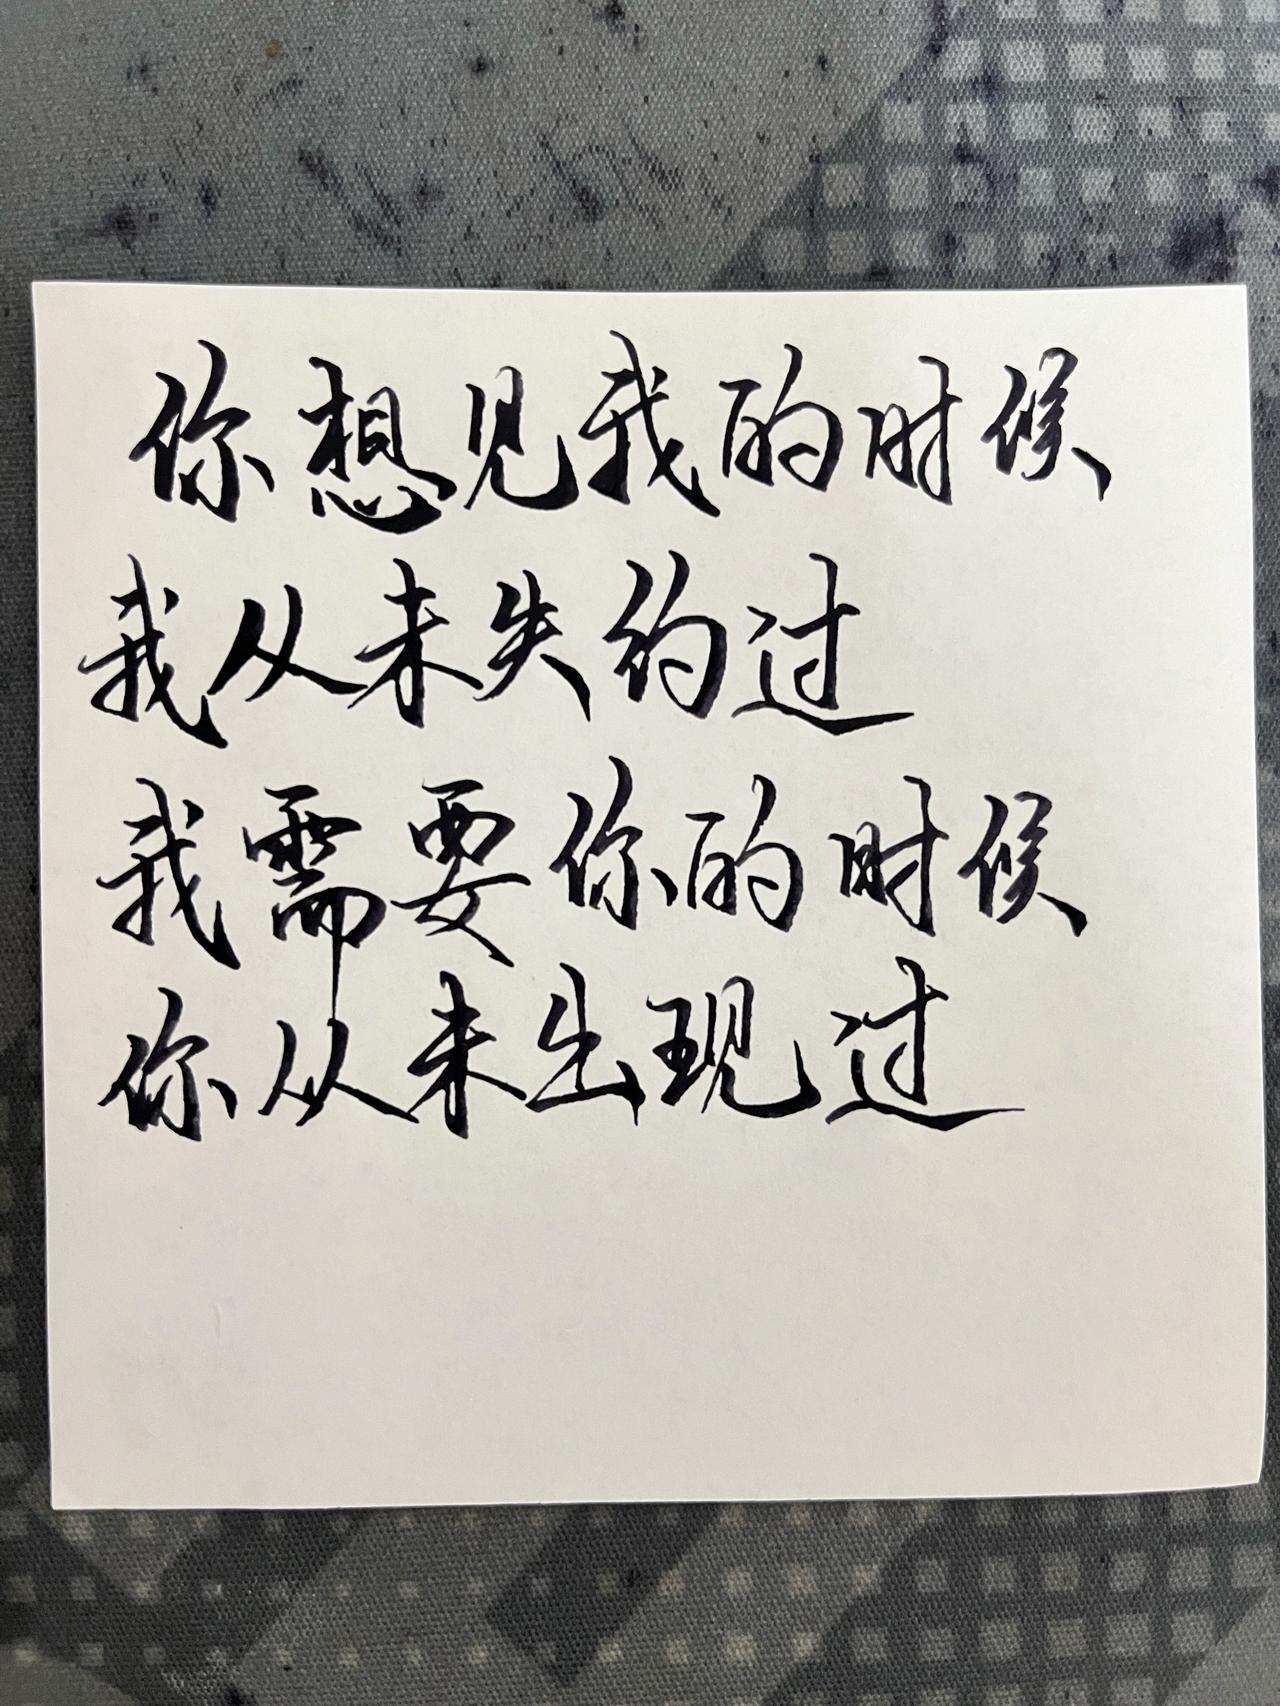 你想见我的时候
我从未失约过
我需要你的时候
你从未出现过